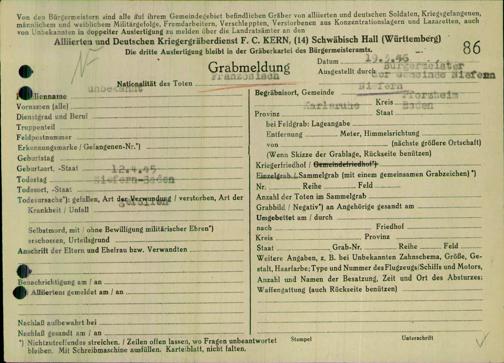 Von den Bürgermeistern sind alle auf ihrem Gemeindegebiet befindlichen Gräber von alliierten und deutschen Soldaten, Kriegsgefangenen,
männlichem und weiblichem Militärgefolge, Fremdarbeitern, Verschleppten, Verstorbenen aus Konzentrationslagern und Lazaretten, auch
von Unbekannten in doppelter Ausfertigung zu melden über die Landratsämter an den
Alliierten und Deutschen Kriegergräberdienst F. C. KERN, (14) Schwäbisch Hall (Württemberg)
Die dritte Ausfertigung bleibt in der Gräberkartei des Bürgermeisteramts.
86
N
Grabmeldung
Datum 19.5.46
Ausgestellt durch Bürgermeister
der Gemeinde Niefern
Nationalität des Toten Französisch
Familienname unbekannt
Vornamen (alle)
Dienstgrad und Beruf
Truppenteil
Feldpostnummer
Erkennungsmarke / Gefangenen-Nr.*)
Geburtstag
Geburtsort, -Staat
Todestag 12.4.45
Todesort, -Staat Niefern-Baden
Todesursache*): gefallen, Art der Verwundung / verstorben, Art der
Krankheit / Unfall gefallen
Selbstmord, mit / ohne Bewilligung militärischer Ehren*)
erschossen, Urteilsgrund
Anschrift der Eltern und Ehefrau bzw. Verwandten
Benachrichtigung am / an
Alliiertens gemeldet am / an
Nachlaß aufbewahrt bei
Nachlaß gesandt am / an
*) Nichtzutreffendes streichen. / Zeilen offen lassen, wo Fragen unbeantwortet
bleiben. Mit Schreibmaschine ausfüllen. Karteiblatt, nicht falten.
Begräbnisort, Gemeinde Niefern
Kreis Pforzheim
Provinz Karlsruhe Staat Baden
bei Feldgrab: Lageangabe
Entfernung Meter, Himmelsrichtung
von (nächste größere Ortschaft)
(Wenn Skizze der Grablage, Rückseite benützen)
Kriegerfriedhof / Gemeindefriedhof*)
Einzelgrab / Sammelgrab (mit einem gemeinsamen Grabzeichen) *)
Nr. Reihe Feld
Anzahl der Toten im Sammelgrab
Grabbild / Negativ*) an Angehörige gesandt am
Umgebettet am / durch
nach Friedhof
Kreis Provinz
Staat Grab-Nr. Reihe Feld
Weitere Angaben, z. B. bei Unbekannten Zahnschema, Größe, Ge-
stalt, Haarfarbe; Type und Nummer des Flugzeugs/Schiffs und Motors,
Anzahl und Namen der Besatzung, Zeit und Ort des Absturzes;
Waffengattung (auch Rückseite benützen)
Stempel Unterschrift